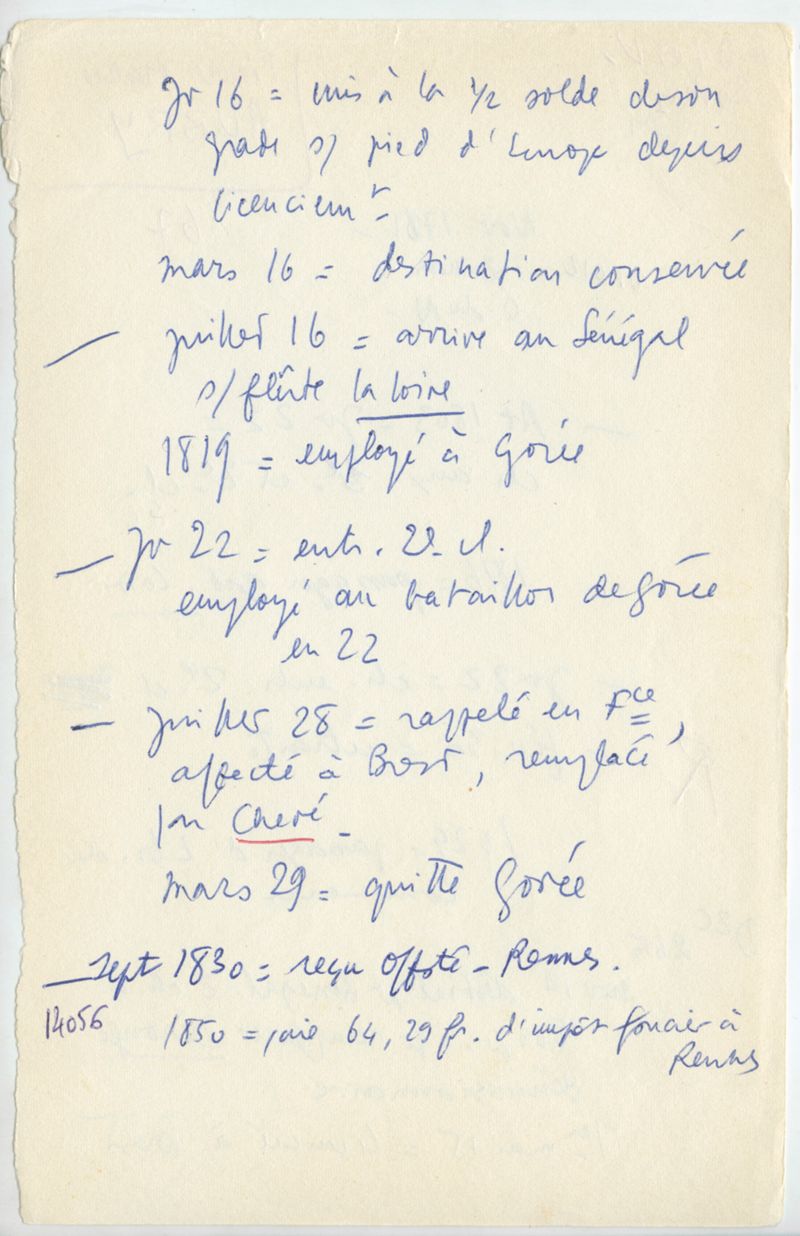 Jr 16 = mis à la 1/2 solde de son
grade s/ pied d'Europe depuis
licenciemt
mars 16 = destination conservée
— juillet 16 = arrive au Sénégal
s/ flûte la Loire
1819 = employé à Gorée
— Jr 22 = ent. 2e cl.
employé au bataillon de Gorée
en 22
— juillet 28 = rappelé en Fce,
affecté à Brest, remplacé
par Cheré -
mars 29 = quitte Gorée
— sept 1830 = reçu Offsté - Rennes.
14056
1850 = paie 64,29 fr. d'impôt foncier à
Rennes